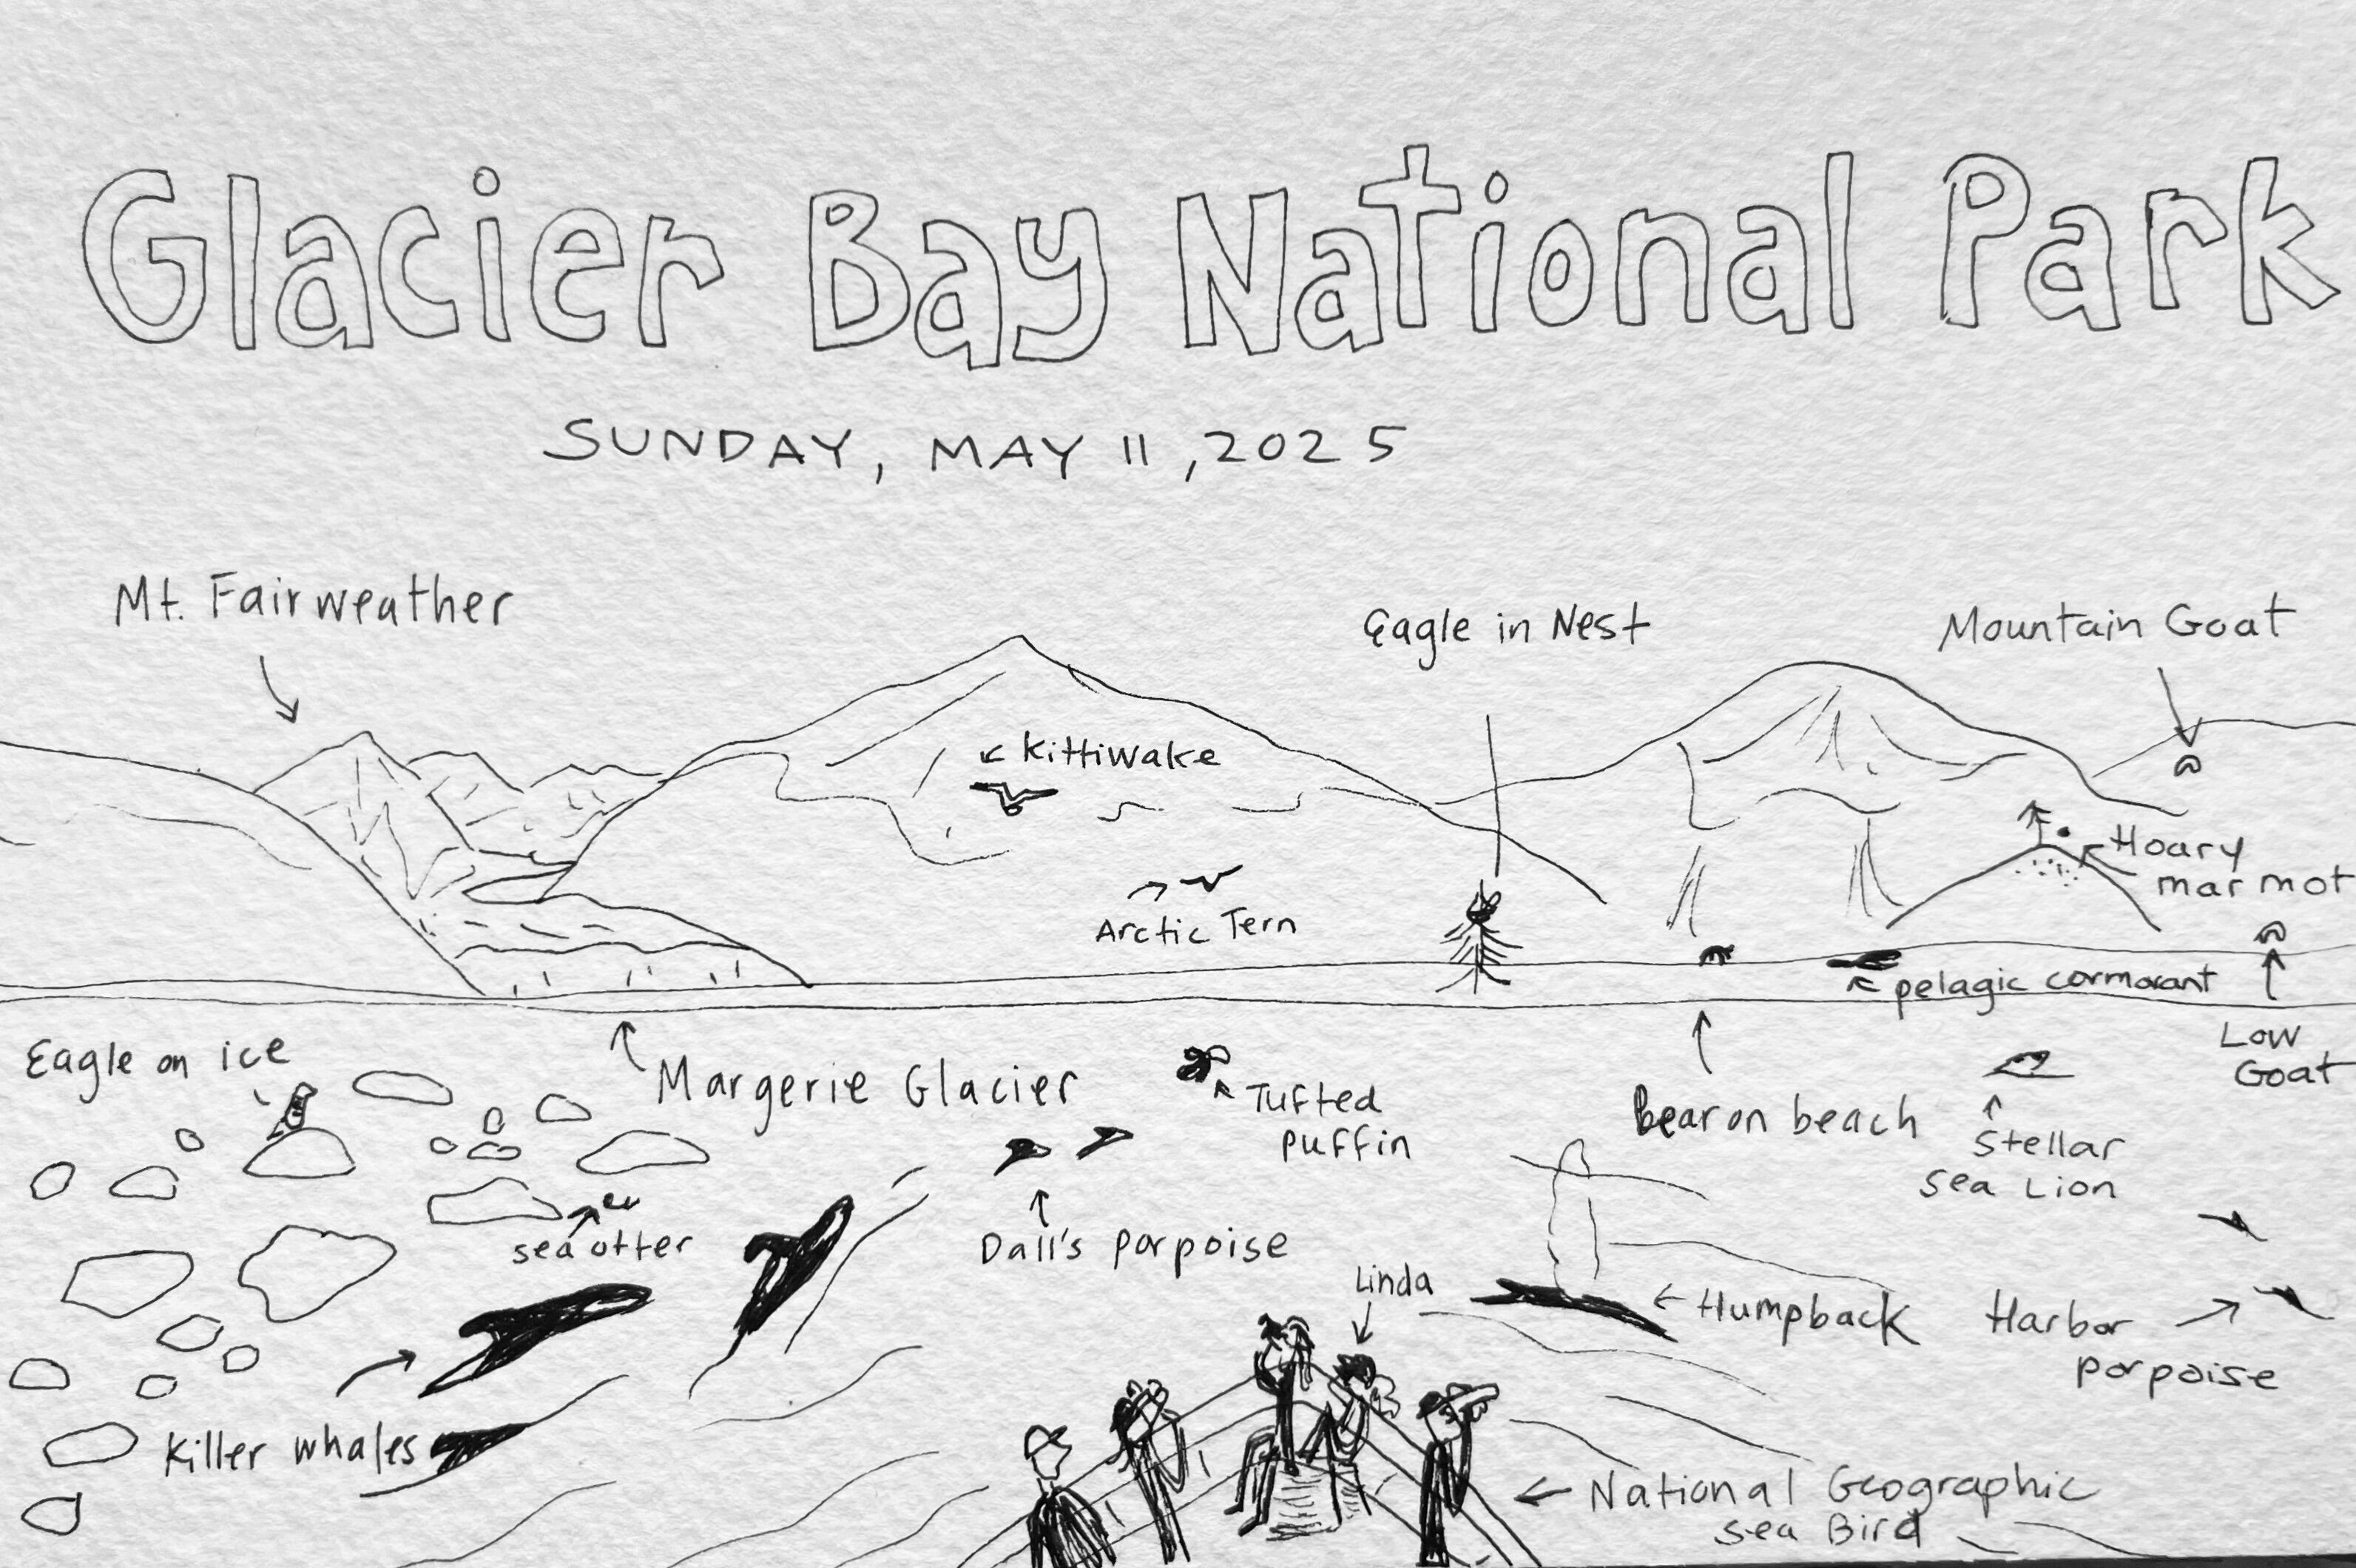 Glacier Bay National Park
SUNDAY, MAY 11, 2025
Mt. Fairweather
Eagle in Nest
Mountain Goat
Kittiwake
Hoary
marmot
Arctic Tern
pelagic cormorant
Low
Goat
Eagle on ice
Margerie Glacier
Tufted
puffin
Bear on beach
Stellar
Sea Lion
sea otter
Dall's porpoise
Linda
Humpback
Harbor
porpoise
Killer whales
National Geographic
Sea Bird